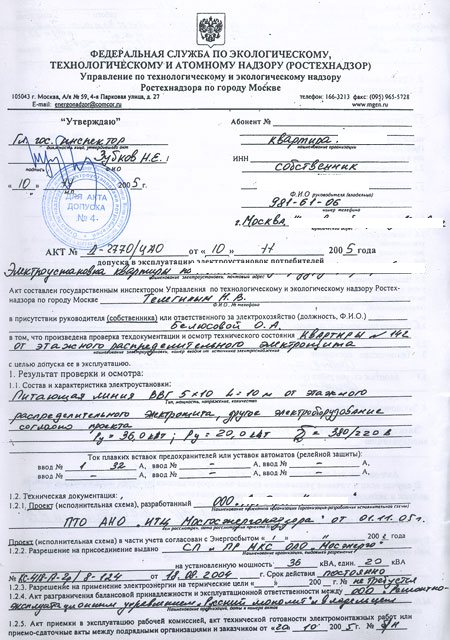 ФЕДЕРАЛЬНАЯ СЛУЖБА ПО ЭКОЛОГИЧЕСКОМУ,
ТЕХНОЛОГИЧЕСКОМУ И АТОМНОМУ НАДЗОРУ (РОСТЕХНАДЗОР)
Управление по технологическому и экологическому надзору
Ростехнадзора по городу Москве
105043 г. Москва, А/я № 59, 4-я Парковая улица, д. 27 телефон: 166-3213 факс: (095) 965-5728
E-mail: energonadzor@comcor.ru www.mgen.ru
"Утверждаю" Абонент №
Гл. гос. инспектор квартира
Зубков Н.Е. ИНН
собственник
подпись Ф.И.О
"10" 11 2005 г. Ф.И.О руководителя (владельца)
981-61-06
номер телефона
ДЛЯ АКТА ДОПУСКА № 4
г. Москва
АКТ № Д-2770/ЦАО от "10" 11 2005 года
допуска в эксплуатацию электроустановок потребителей
Электроустановка квартиры по
Акт составлен государственным инспектором Управления по технологическому и экологическому надзору Ростех-
надзора по городу Москве Телегиным Н.В.
в присутствии руководителя (собственника) или ответственного за электрохозяйство (должность, Ф.И.О.)
Белюсовой О.А.
в том, что произведена проверка техдокументации и осмотр технического состояния квартиры № 142
от этажного распределительного электрощита
с целью допуска ее в эксплуатацию.
1. Результат проверки и осмотра:
1.1. Состав и характеристика электроустановки:
Питающая линия ВВГ 5×10 L=10м от этажного
тип, мощность, напряжение, количество
распределительного электрощита, другое электроборудование
согласно проекта
Ру = 36,0 кВт; Рр = 20,0 кВт 380/220 В
Ток плавких вставок предохранителей или уставок автоматов (релейной защиты):
ввод № 1 32 А, ввод № – А, ввод № – А,
ввод № – А, ввод № – А, ввод № – А,
1.2. Техническая документация:
1.2.1. Проект (исполнительная схема), разработанный ООО
ПТО АНО "ИТЦ Мосгосэнергонадзора" от 01.11.05г.
1.2.4. Проект (исполнительная схема) в части учета согласован с Энергосбытом " 200 г.
1.2.2. Разрешение на присоединение выдано СП и ПР МКС ОАО "Мосэнерго"
на установленную мощность 36 кВА, един. 20 кВА
от 18.08.2004 г. Срок действия постоянно
1.2.3. Разрешение на применение электроэнергии на термические цели от " 200 г. № не требуется
1.2.4. Акт разграничения балансовой принадлежности и эксплуатационной ответственности между ООО "Ремонтно-
эксплуатационным управлением" и владельцем
1.2.5. Акт приемки в эксплуатацию рабочей комиссией, акт технической готовности электромонтажных работ или
приемо-сдаточные акты между подрядными организациями и заказчиком от 10 2005 г. № б/н